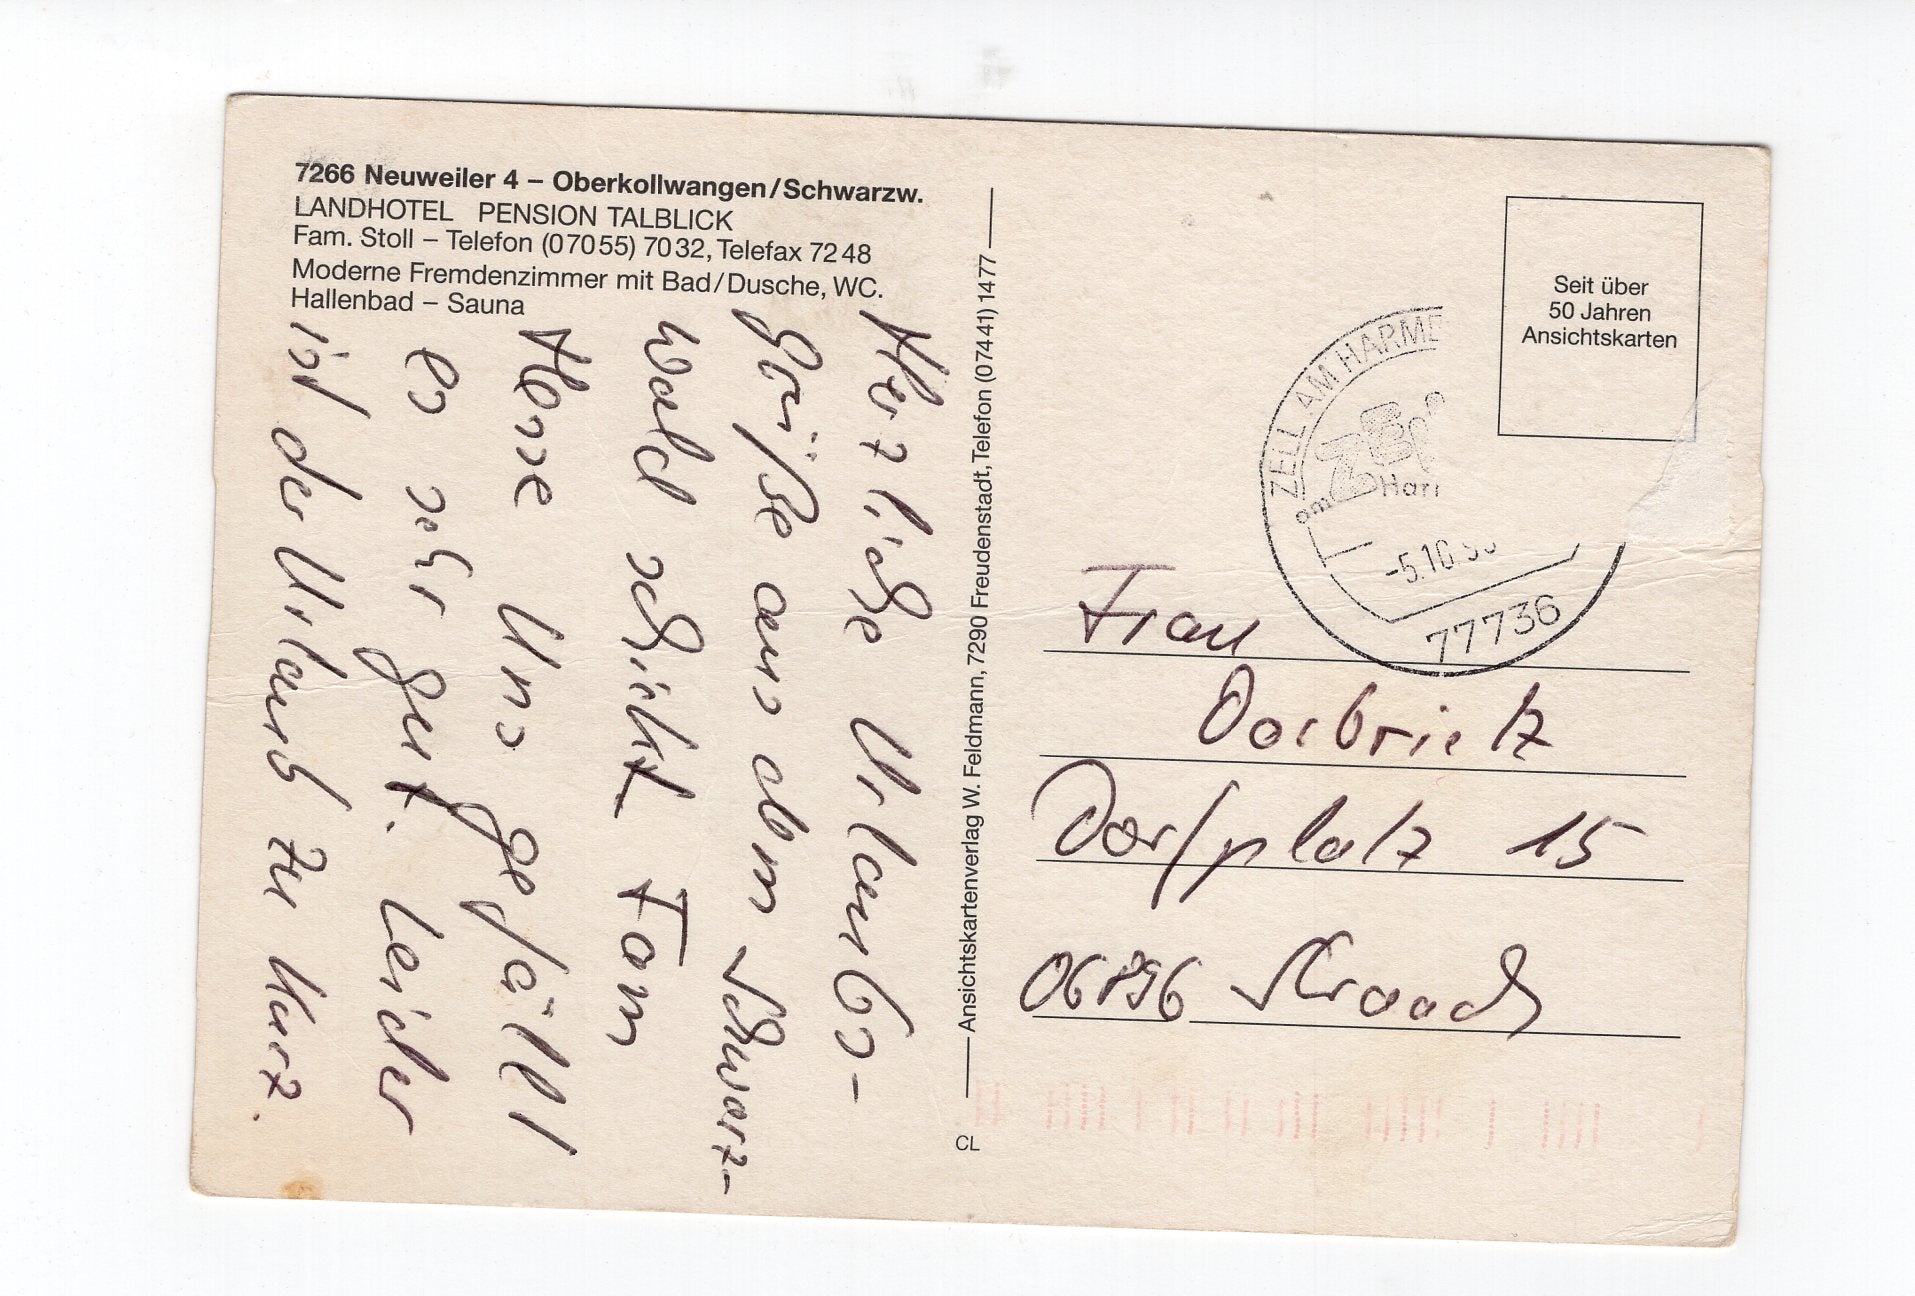 7266 Neuweiler 4 – Oberkollwangen/Schwarzw.
LANDHOTEL PENSION TALBLICK
Fam. Stoll – Telefon (07055) 7032, Telefax 7248
Moderne Fremdenzimmer mit Bad/Dusche, WC.
Hallenbad – Sauna
Herzliche Urlaubs-
grüße aus dem Schwarz-
wald schickt Fam
Uns gefällt
es sehr gut. Leider
ist der Urlaub zu kurz.
Ansichtskartenverlag W. Feldmann, 7290 Freudenstadt, Telefon (07441) 1477
CL
Seit über
50 Jahren
Ansichtskarten
ZELL AM HARME
am ZELL
Har
-5.10.
77736
Frau
Dorbrietz
Dorfplatz 15
06896 Straach